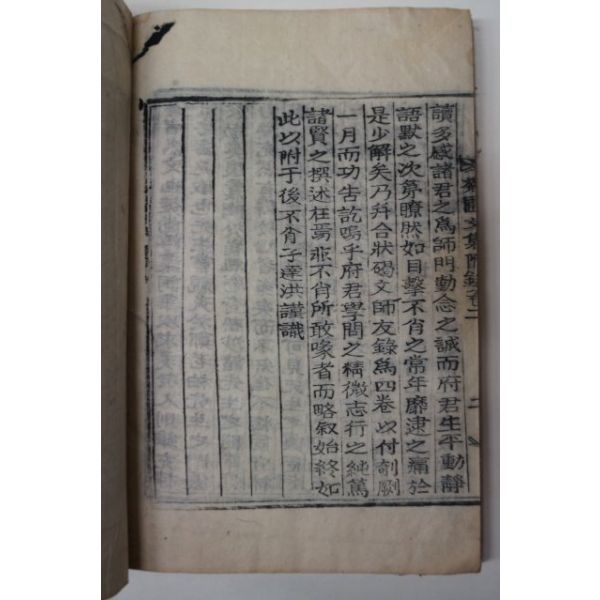 文集附錄卷二
二
讀多感諸君之爲師門動念之誠而府君生平動靜
語默之次第瞭然如目擊不肖之常年靡逮之痛於
是少解矣乃幷合狀碣文師友錄爲四卷以付剞劂
一月而功告訖嗚乎府君學問之精微志行之純篤
諸賢之撰述在焉非不肖所敢喙者而略叙始終如
此以附于後不肖子達洪謹識